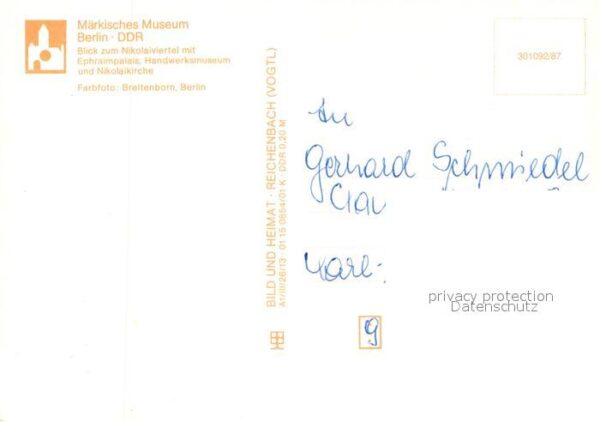 Märkisches Museum
Berlin · DDR
Blick zum Nikolaiviertel mit
Ephraimpalais, Handwerksmuseum
und Nikolaikirche
Farbfoto: Breitenborn, Berlin
BILD UND HEIMAT · REICHENBACH (VOGTL)
A1/III/26/13 · 01 15 0654/01 K · DDR 0,20 M
301092/87
An
Gerhard Schmiedel
Karl-
9
privacy protection
Datenschutz